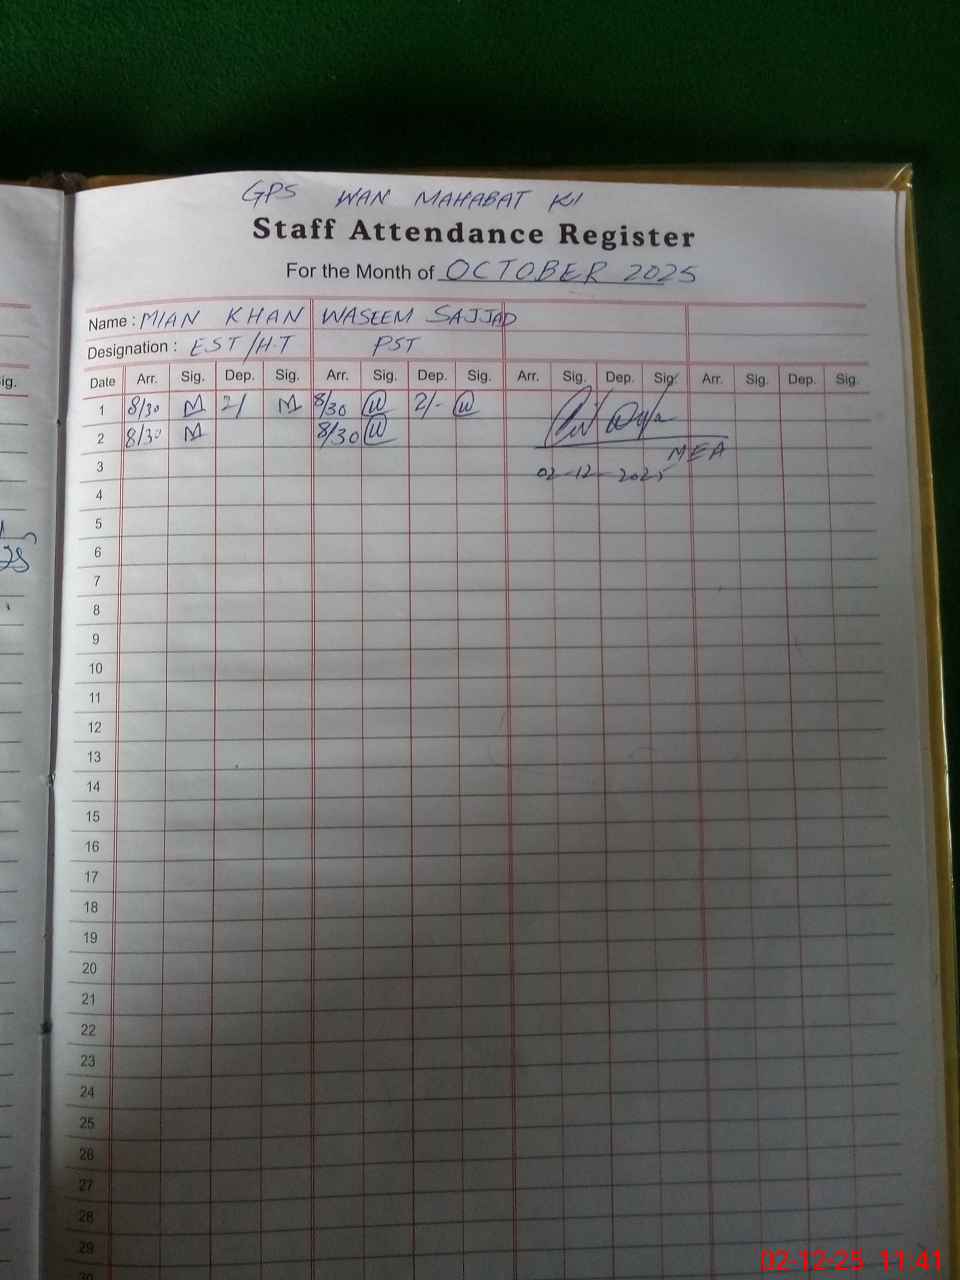 GPS WAN MAHABAT KI
Staff Attendance Register
For the Month of OCTOBER 2025
Name : MIAN KHAN WASEEM SAJJAD
Designation : EST/H.T PST
Date Arr. Sig. Dep. Sig. Arr. Sig. Dep. Sig. Arr. Sig. Dep. Sig. Arr. Sig. Dep. Sig.
ig.
1 8/30 M 2/ M 8/30 W 2/- W
2 8/30 M 8/30 W
MEA
3 02-12-2025
4
5
6
25
7
8
9
10
11
12
13
14
15
16
17
18
19
20
21
22
23
24
25
26
27
28
29
30
02-12-25 11:41